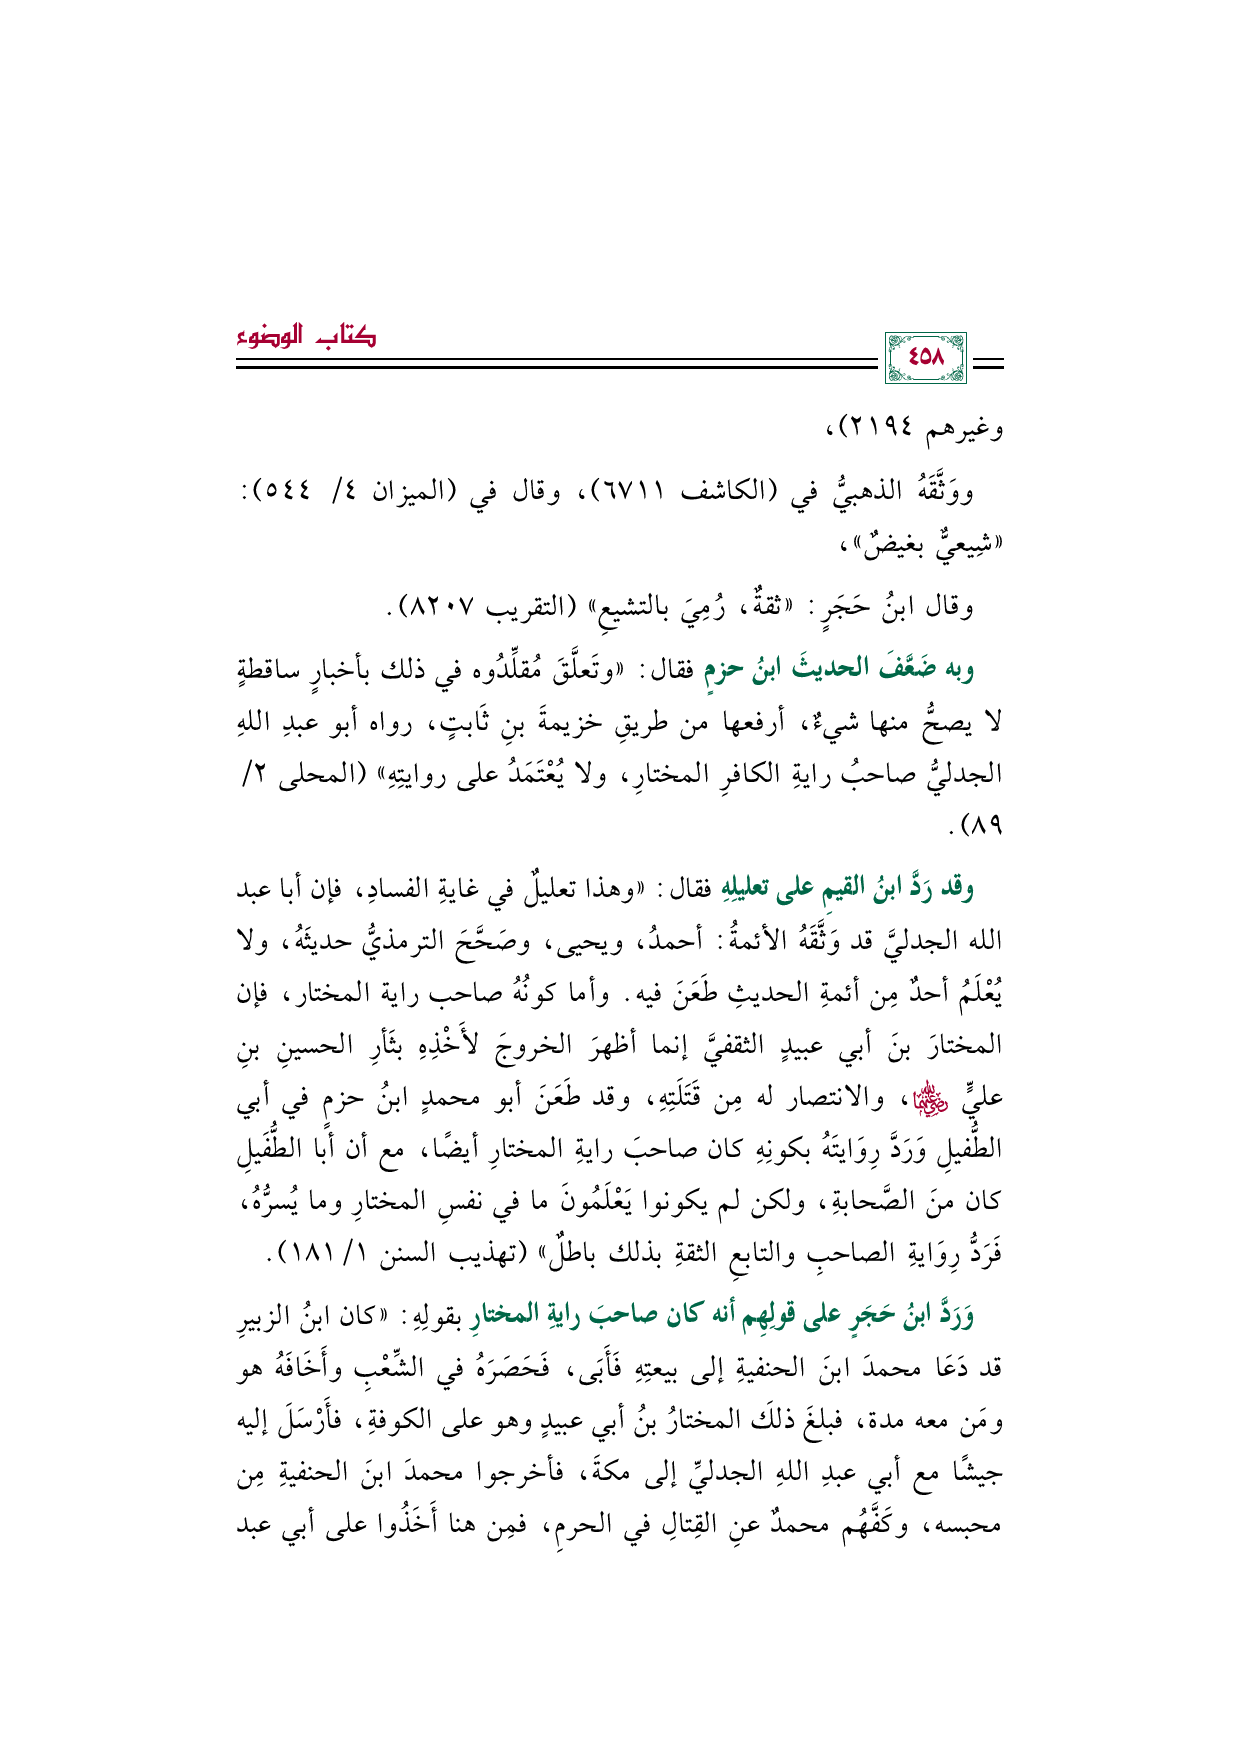 كتاب الوضوء
٤٥٨
وغيرهم ٢١٩٤)،
ووَثَّقَهُ الذهبيُّ في (الكاشف ٦٧١١)، وقال في (الميزان ٤/ ٥٤٤):
«شِيعيٌّ بغيضٌ»،
وقال ابنُ حَجَرٍ: «ثقةٌ، رُمِيَ بالتشيعِ» (التقريب ٨٢٠٧).
وبه ضَعَّفَ الحديثَ ابنُ حزمٍ فقال: «وتَعلَّقَ مُقلِّدُوه في ذلك بأخبارٍ ساقطةٍ
لا يصحُّ منها شيءٌ، أرفعها من طريقِ خزيمةَ بنِ ثَابتٍ، رواه أبو عبدِ اللهِ
الجدليُّ صاحبُ رايةِ الكافرِ المختارِ، ولا يُعْتَمَدُ على روايتِهِ» (المحلى ٢/
٨٩).
وقد رَدَّ ابنُ القيمِ على تعليلِهِ فقال: «وهذا تعليلٌ في غايةِ الفسادِ، فإن أبا عبد
الله الجدليَّ قد وَثَّقَهُ الأئمةُ: أحمدُ، ويحيى، وصَحَّحَ الترمذيُّ حديثَهُ، ولا
يُعْلَمُ أحدٌ مِن أئمةِ الحديثِ طَعَنَ فيه. وأما كونُهُ صاحب راية المختار، فإن
المختارَ بنَ أبي عبيدٍ الثقفيَّ إنما أظهرَ الخروجَ لأَخْذِهِ بثَأرِ الحسينِ بنِ
عليٍّ رضي الله عنهما، والانتصار له مِن قَتَلَتِهِ، وقد طَعَنَ أبو محمدٍ ابنُ حزمٍ في أبي
الطُّفيلِ وَرَدَّ رِوَايتَهُ بكونِهِ كان صاحبَ رايةِ المختارِ أيضًا، مع أن أبا الطُّفَيلِ
كان منَ الصَّحابةِ، ولكن لم يكونوا يَعْلَمُونَ ما في نفسِ المختارِ وما يُسرُّهُ،
فَرَدُّ رِوَايةِ الصاحبِ والتابعِ الثقةِ بذلك باطلٌ» (تهذيب السنن ١/ ١٨١).
وَرَدَّ ابنُ حَجَرٍ على قولِهِم أنه كان صاحبَ رايةِ المختارِ بقولِهِ: «كان ابنُ الزبيرِ
قد دَعَا محمدَ ابنَ الحنفيةِ إلى بيعتِهِ فَأَبَى، فَحَصَرَهُ في الشِّعْبِ وأَخَافَهُ هو
ومَن معه مدة، فبلغَ ذلَك المختارُ بنُ أبي عبيدٍ وهو على الكوفةِ، فأَرْسَلَ إليه
جيشًا مع أبي عبدِ اللهِ الجدليِّ إلى مكةَ، فأخرجوا محمدَ ابنَ الحنفيةِ مِن
محبسه، وكَفَّهُم محمدٌ عنِ القِتالِ في الحرمِ، فمِن هنا أَخَذُوا على أبي عبد